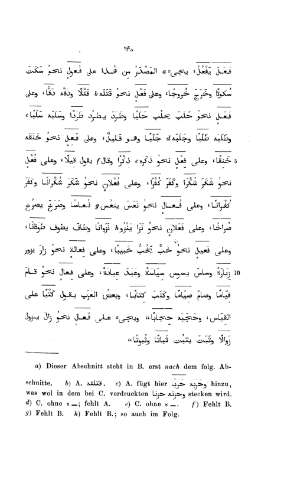 فَعَلَ يَفْعُلُ، يجىء المصدر من هذا على فُعُول نحو سَكَتَ
سُكُوتًا وخَرَجَ خُرُوجًا، وعلى فَعْل نحو قَتَلَهُ قَتْلًا ودَقَّه دَقًّا، وعلى
فَعَل نحو حَلَبَ يَحْلُبُ حَلَبًا وطَرَدَ يَطْرُدُ طَرَدًا وسَلَبَه سَلَبًا
وجَلَبَه جَلَبًا وهو قليل، وعلى فَعِل نحو خَنَقَه
خَنِقًا، وعلى فِعْل نحو ذَكَرَه ذِكْرًا وقال يقول قِيلًا، وعلى فُعْل
نحو شَكَرَ شُكْرًا وكَفَرَ كُفْرًا، وعلى فُعْلان نحو شَكَرَ شُكْرانًا وكَفَرَ
كُفْرانًا، وعلى فُعال نحو نَعَسَ يَنْعُسُ نُعاسًا وصَرَخَ يَصْرُخُ
صُراخًا، وعلى فَعَلان نحو نَزا يَنْزُو نَزَوانًا وطاف يطوف طَوَفانًا،
وعلى فَعِيل نحو خَبَّ يَخُبُّ خَبِيبًا، وعلى فِعالة نحو زار يزور
زِيارةً وساس يسوس سِياسةً وعَبَدَ عِبادةً، وعلى فِعال نحو قام 10
قِيامًا وصام صِيامًا وكَتَبَ كِتابًا، وبعض العرب يقول كَتْبًا على
القياس، وحَجَبَه حِجابًا، ويجىء على فَعال نحو زال يزول
زَوالًا وثَبَتَ يَثْبُتُ ثَباتًا وثُبُوتًا
a) Dieser Abschnitt steht in B. erst nach dem folg. Ab-
schnitte. b) A. c) A. fügt hier hinzu,
was wol in dem bei C. verdruckten stecken wird.
d) C. ohne s —; fehlt A. e) C. ohne s —. f) Fehlt B.
g) Fehlt B. h) Fehlt B.; so auch im Folg.